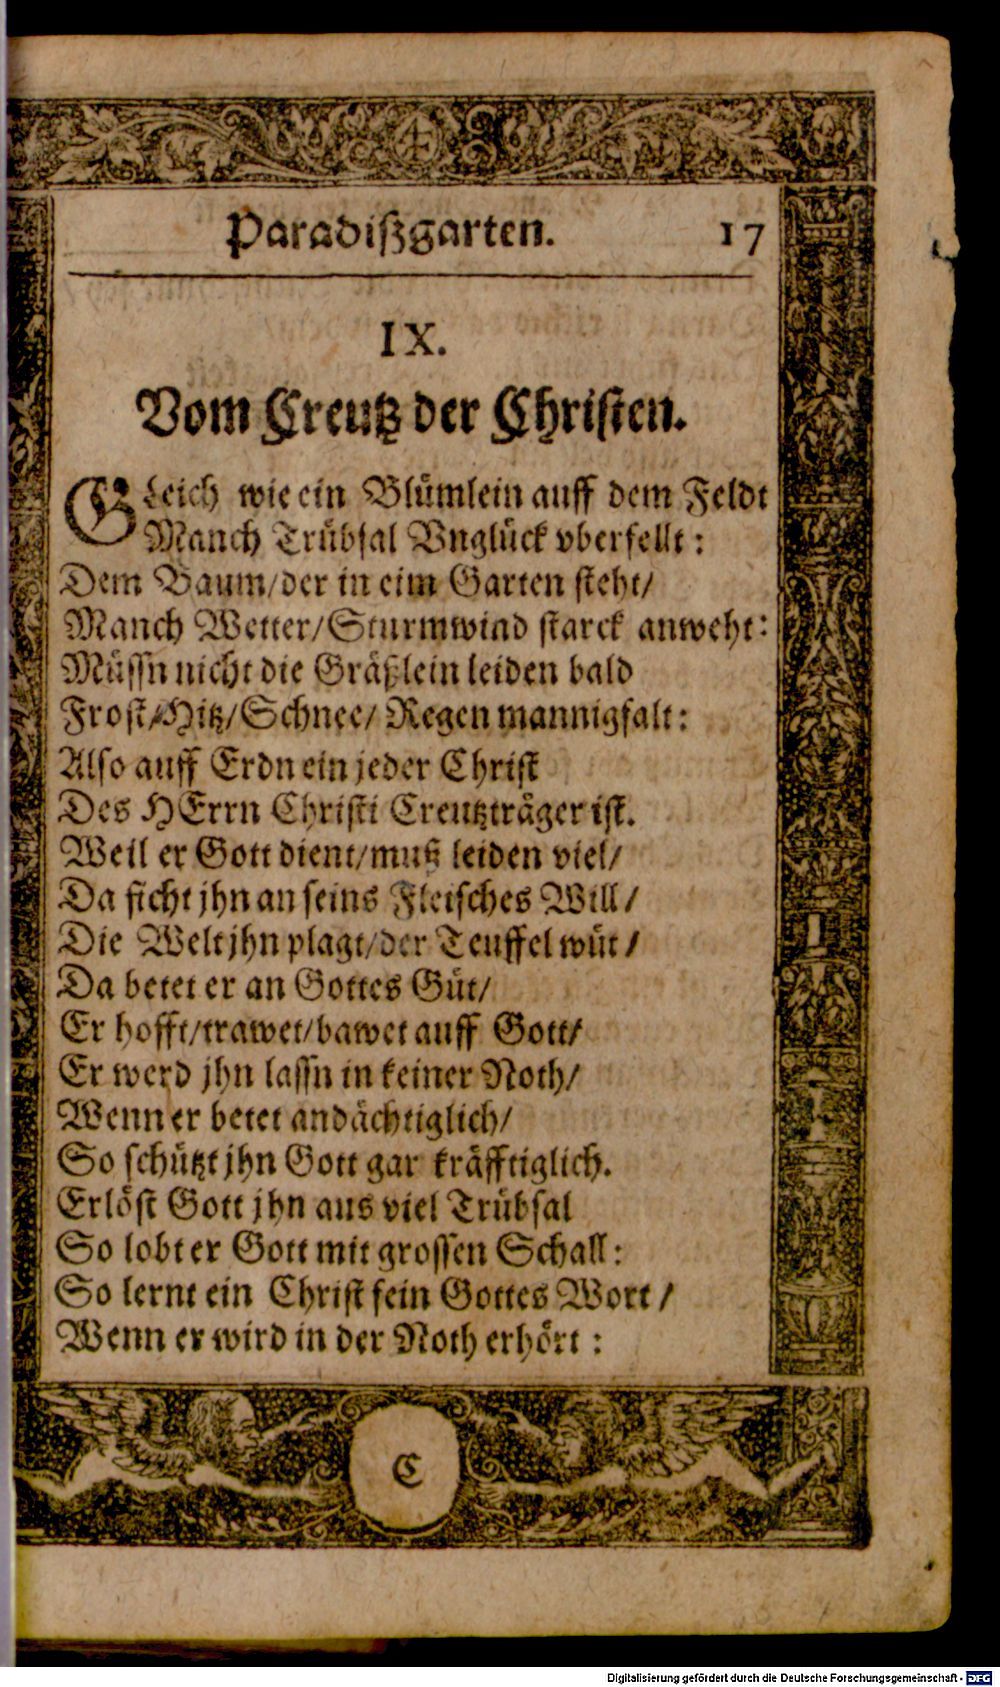 Paradißgarten. 17
IX.
Vom Creutz der Christen.
GLeich wie ein Blümlein auff dem Feldt
Manch Trübsal Vnglück vberfellt:
Dem Baum/der in eim Garten steht/
Manch Wetter/Sturmwind starck anweht:
Müssn nicht die Gräßlein leiden bald
Frost/Hitz/Schnee/ Regen mannigfalt:
Also auff Erdn ein jeder Christ
Des HErrn Christi Creutzträger ist.
Weil er Gott dient/muß leiden viel/
Da ficht jhn an seins Fleisches Will/
Die Welt jhn plagt/der Teuffel wüt/
Da betet er an Gottes Güt/
Er hofft/trawet/bawet auff Gott/
Er werd jhn lassn in keiner Noth/
Wenn er betet andächtiglich/
So schützt jhn Gott gar kräfftiglich.
Erlöst Gott jhn aus viel Trübsal
So lobt er Gott mit grossen Schall:
So lernt ein Christ fein Gottes Wort/
Wenn er wird in der Noth erhört:
C
Digitalisierung gefördert durch die Deutsche Forschungsgemeinschaft - DFG